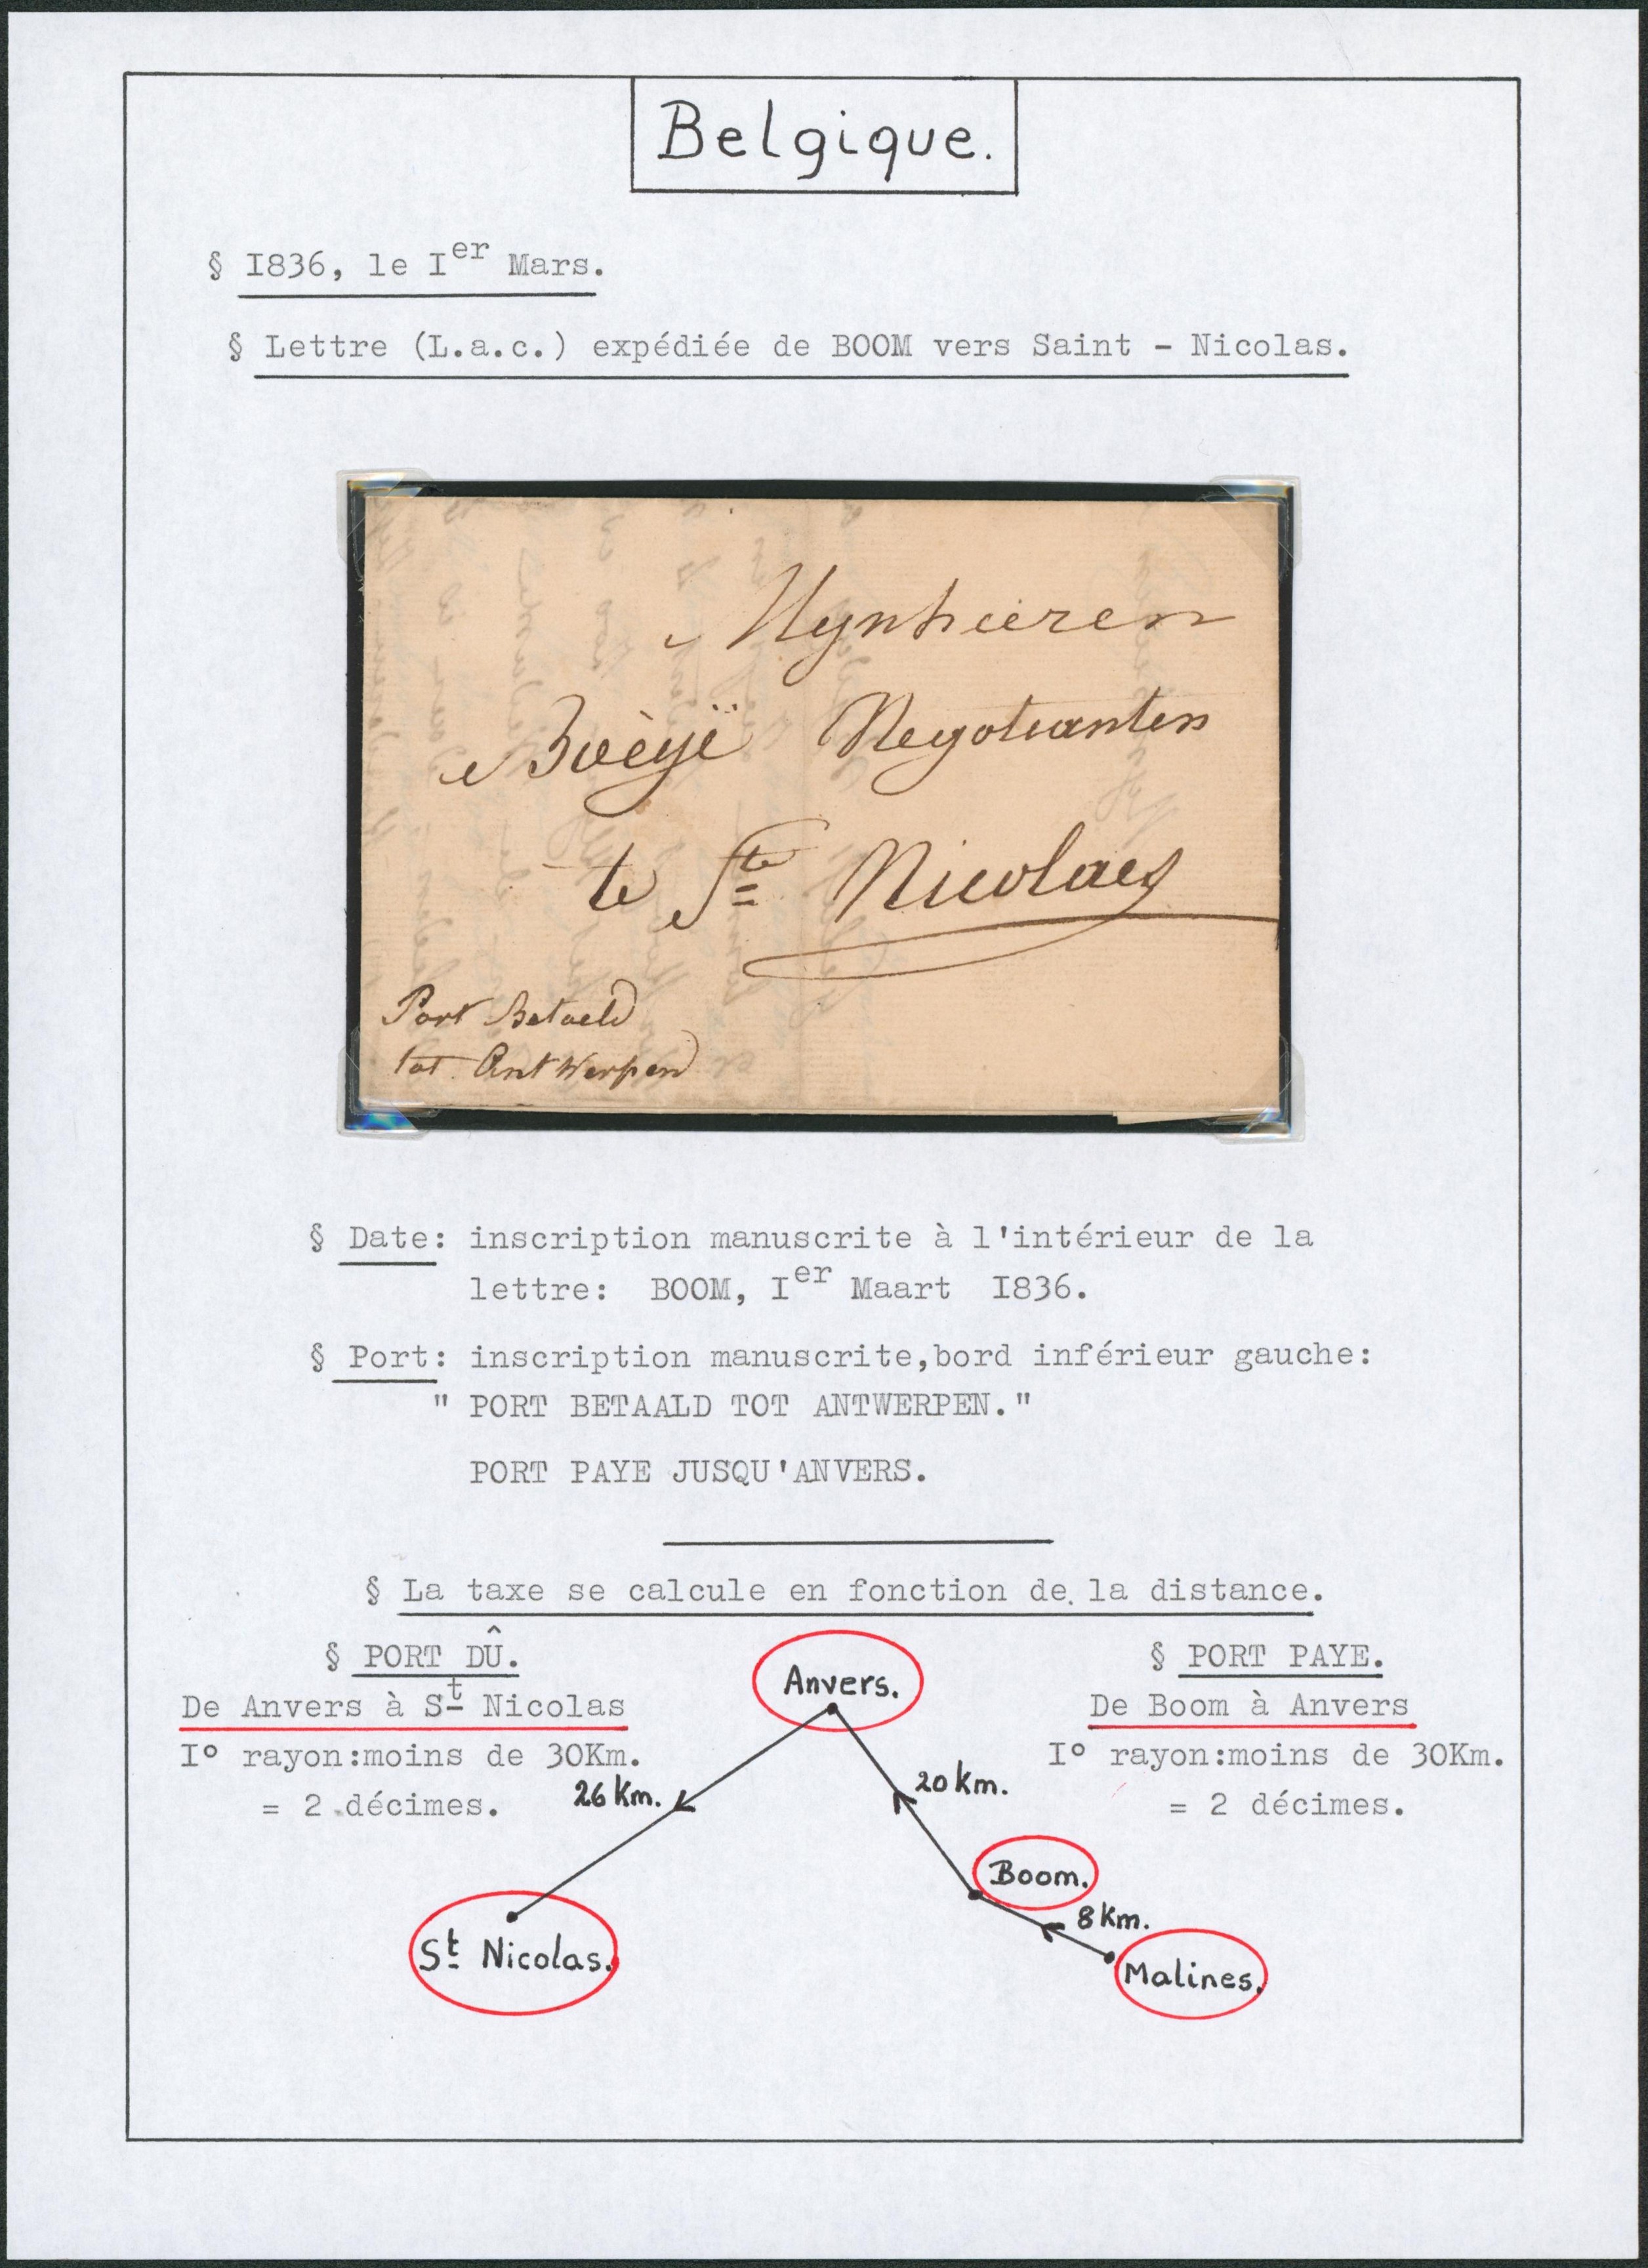 Belgique.
§ I836, le Ier Mars.
§ Lettre (L.a.c.) expédiée de BOOM vers Saint - Nicolas.
Mynheeren
Negotianten
te Ste Nicolaes
Port Betaeld
tot Antwerpen
§ Date: inscription manuscrite à l'intérieur de la
lettre: BOOM, Ier Maart I836.
§ Port: inscription manuscrite,bord inférieur gauche:
" PORT BETAALD TOT ANTWERPEN."
PORT PAYE JUSQU'ANVERS.
§ La taxe se calcule en fonction de la distance.
§ PORT DÛ.
De Anvers à St Nicolas
I° rayon:moins de 30Km.
= 2 décimes.
Anvers.
§ PORT PAYE.
De Boom à Anvers
I° rayon:moins de 30Km.
= 2 décimes.
26 Km.
20 Km.
Boom.
8 Km.
St Nicolas.
Malines.